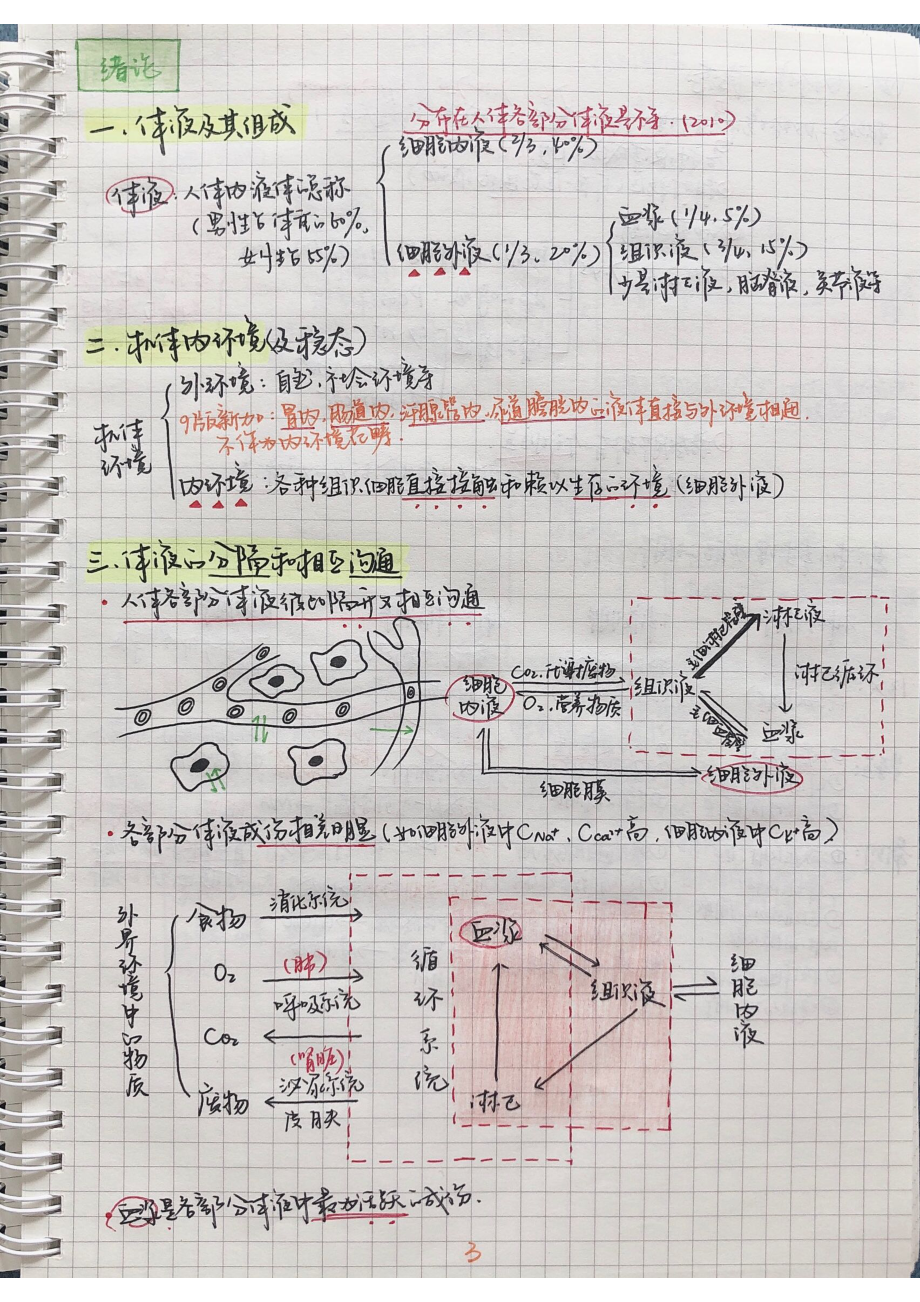 绪论
一、体液及其组成
分布在人体各部分体液量不等.(2010)
体液:人体内液体总称
(男性占体重的60%,
女性占55%)
细胞内液(2/3,40%)
细胞外液(1/3、20%)
血浆(1/4、5%)
组织液(3/4、15%)
少量淋巴液,脑脊液,关节液等
二、机体内环境(及稳态)
机体
环境
外环境:自然、社会环境等
9版新加:胃内、肠道内、汗腺管内、尿道膀胱内的液体直接与外环境相通.
不作为内环境范畴.
内环境:各种组织细胞直接接触和赖以生存的环境(细胞外液)
三、体液的分隔和相互沟通
·人体各部分体液彼此隔开又相互沟通
细胞
内液
CO₂、代谢废物
O₂、营养物质
组织液
毛细淋巴管壁
淋巴液
淋巴循环
毛细血管壁
血浆
细胞膜
细胞外液
·各部分体液成份相差明显(如细胞外液中CNa⁺、CCa²⁺高,细胞内液中CK⁺高)
外界环境中的物质
食物
消化系统
O₂
(肺)
呼吸系统
CO₂
(肾脏)
泌尿系统
废物
皮肤
循环系统
血浆
组织液
淋巴
细胞内液
·血浆是各部分体液中最为活跃的成份.
3